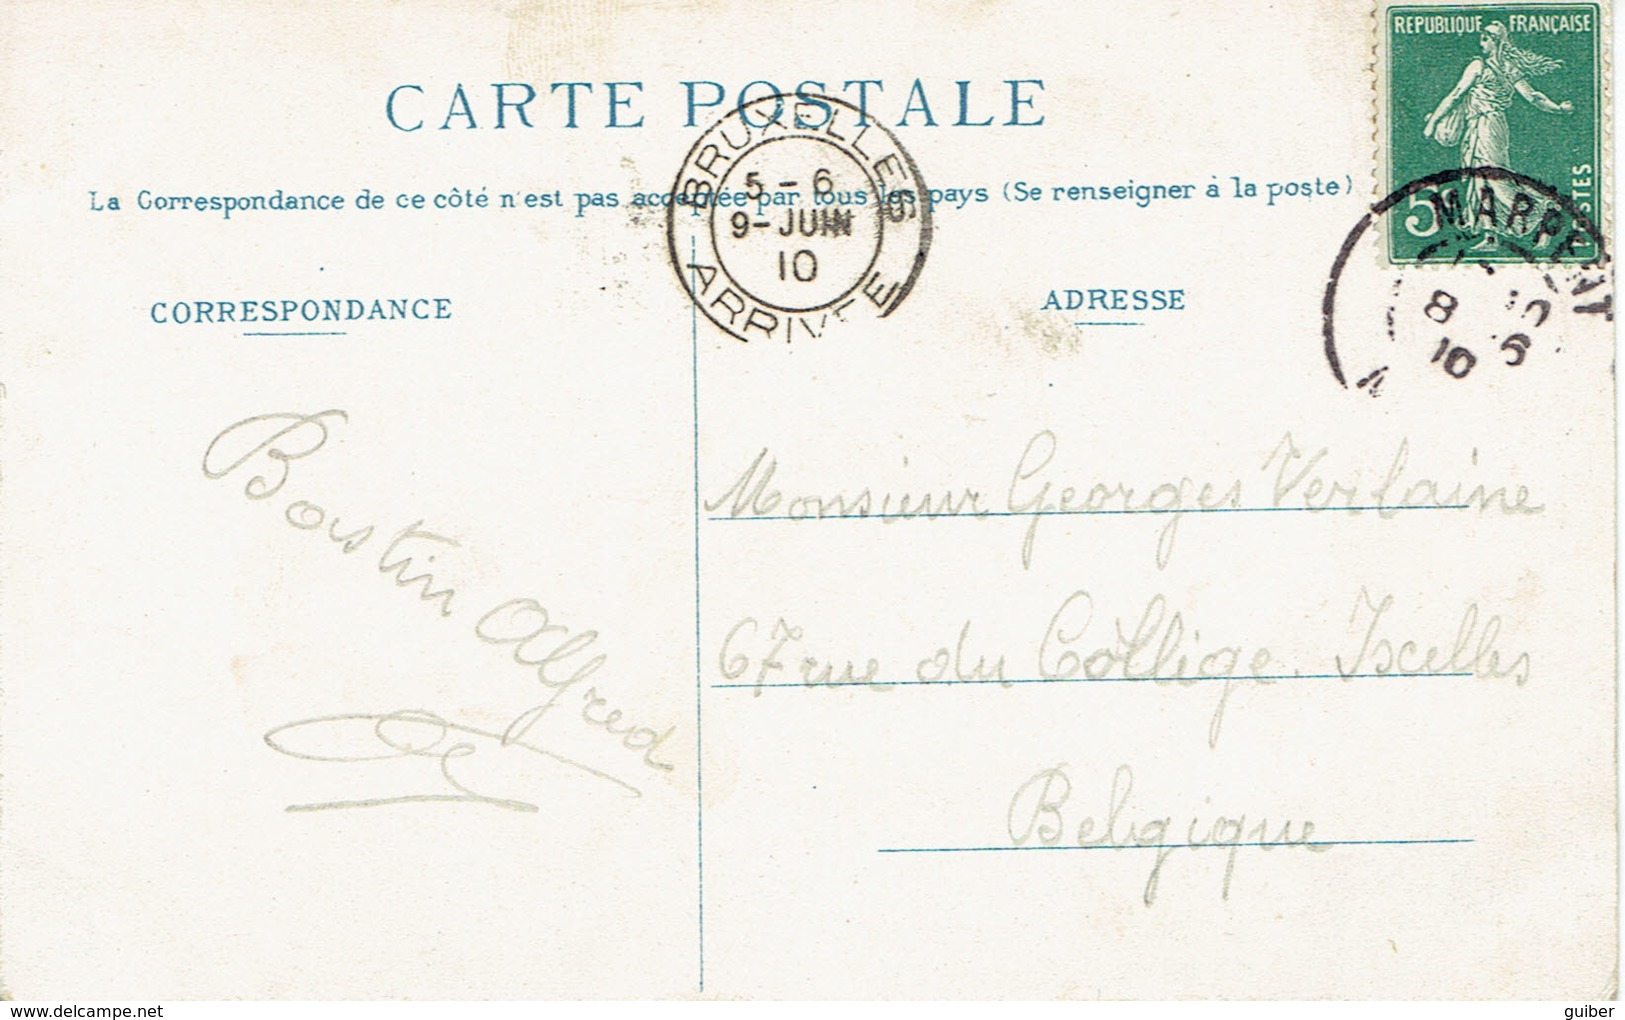 REPUBLIQUE FRANÇAISE
5c POSTES
CARTE POSTALE
BRUXELLES
5 - 6
9 - JUIN
10
ARRIVÉE
MARPENT
8
10 6
La Correspondance de ce côté n'est pas acceptée par tous les pays (Se renseigner à la poste)
CORRESPONDANCE
ADRESSE
Bastin Alfred
Monsieur Georges Verlaine
67 rue du Collige. Ixelles
Belgique
delcampe.net
guiber